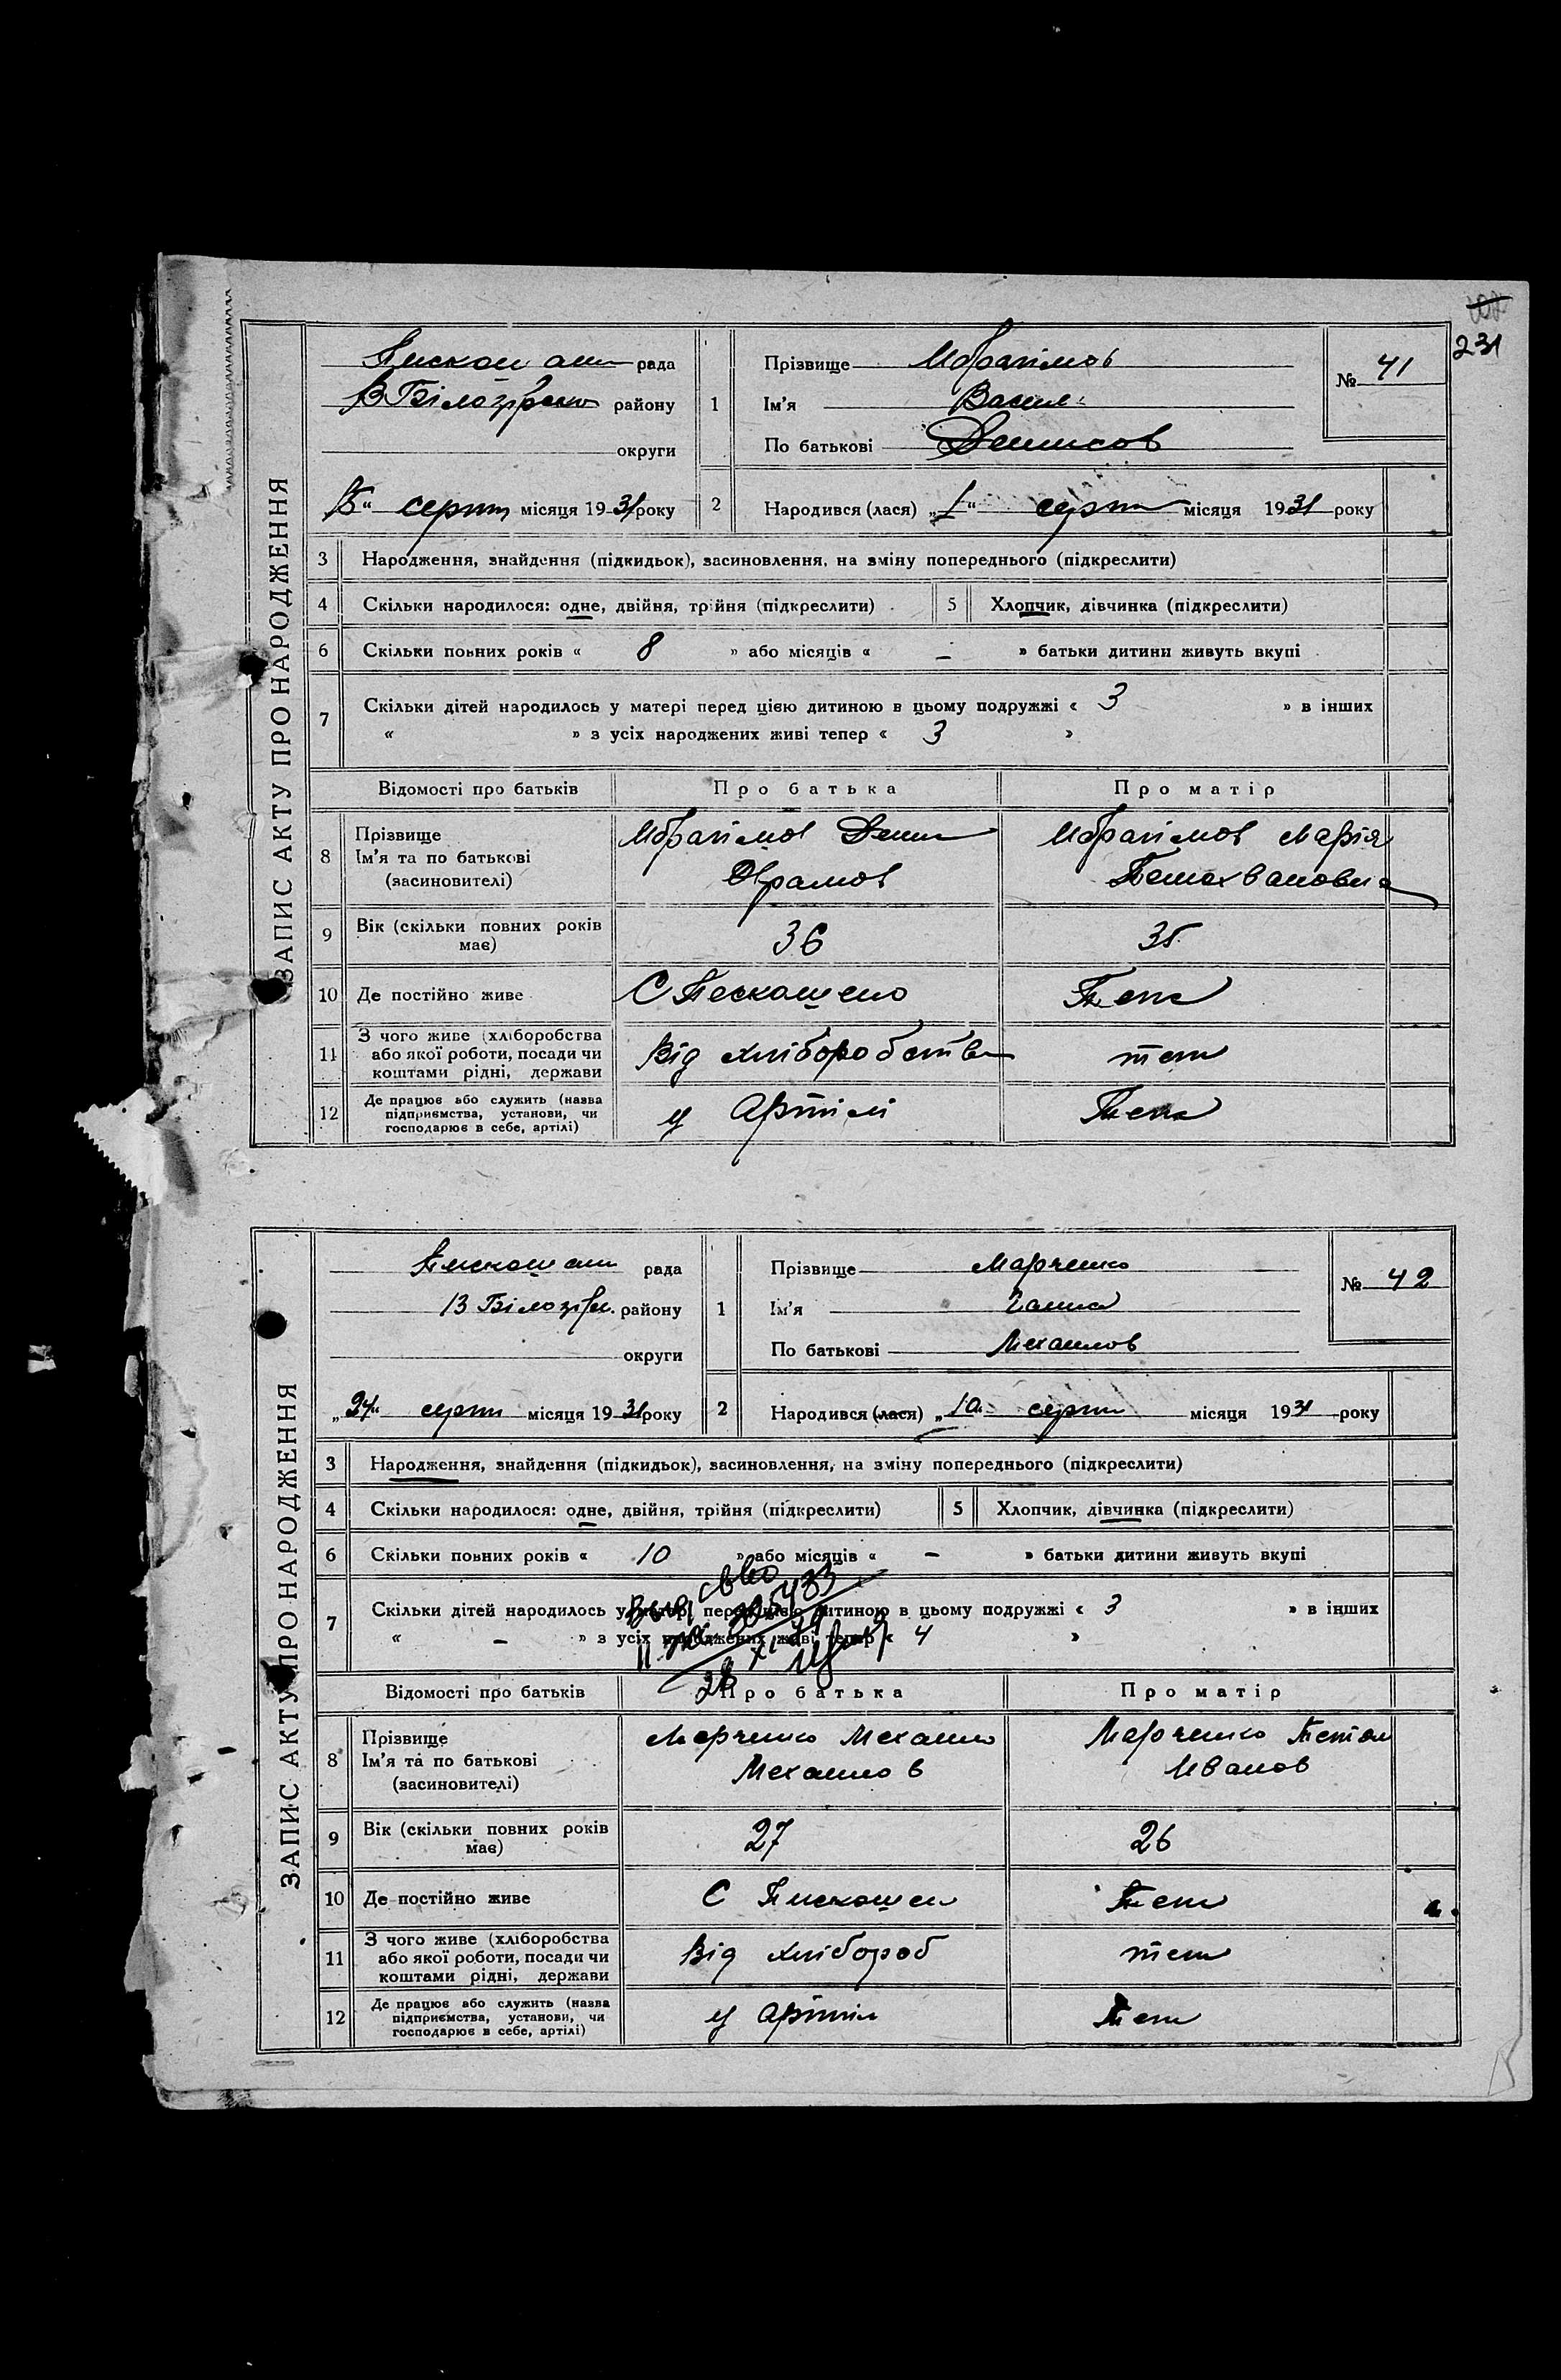 231
ЗАПИС АКТУ ПРО НАРОДЖЕННЯ
Пискошин рада
В Білозірсько району
округи
1 Прізвище Ибрагімов
Ім'я Васил
По батькові Денисов
№ 41
серпн місяця 1931 року
2 Народився (лася) „1“ серпн місяця 1931 року
3 Народження, знайдення (підкидьок), засиновлення, на зміну попереднього (підкреслити)
4 Скільки народилося: одне, двійня, трійня (підкреслити)
5 Хлопчик, дівчинка (підкреслити)
6 Скільки повних років « 8 » або місяців « – » батьки дитини живуть вкупі
7 Скільки дітей народилось у матері перед цією дитиною в цьому подружжі « 3 » в інших
« » з усіх народжених живі тепер « 3 »
Відомості про батьків Про батька Про матір
8 Прізвище
Ім'я та по батькові
(засиновителі)
Ибрагімов Денис
Ибрагімов Марія
9 Вік (скільки повних років
має)
36 35
10 Де постійно живе С Пескошено Теж
11 З чого живе (хліборобства
або якої роботи, посади чи
коштами рідні, держави
Від хліборобства теж
12 Де працює або служить (назва
підприємства, установи, чи
господарює в себе, артілі)
у Артілі Теж
ЗАПИС АКТУ ПРО НАРОДЖЕННЯ
Пискошин рада
В Білозірс. району
округи
1 Прізвище Марченко
Ім'я Ганна
По батькові Механлов
№ 42
„24“ серпн місяця 1931 року
2 Народився (лася) „10“ серпн місяця 1931 року
3 Народження, знайдення (підкидьок), засиновлення, на зміну попереднього (підкреслити)
4 Скільки народилося: одне, двійня, трійня (підкреслити)
5 Хлопчик, дівчинка (підкреслити)
6 Скільки повних років « 10 » або місяців « – » батьки дитини живуть вкупі
7 Скільки дітей народилось у матері перед цією дитиною в цьому подружжі « 3 » в інших
« – » з усіх народжених живі тепер « 4 »
Відомості про батьків Про батька Про матір
8 Прізвище
Ім'я та по батькові
(засиновителі)
Марченко Механло
Механлов
Марченко Тетян
Иванов
9 Вік (скільки повних років
має)
27 26
10 Де постійно живе С Пискошен Теж
11 З чого живе (хліборобства
або якої роботи, посади чи
коштами рідні, держави
Від хлібороб теж
12 Де працює або служить (назва
підприємства, установи, чи
господарює в себе, артілі)
у Артіли Теж